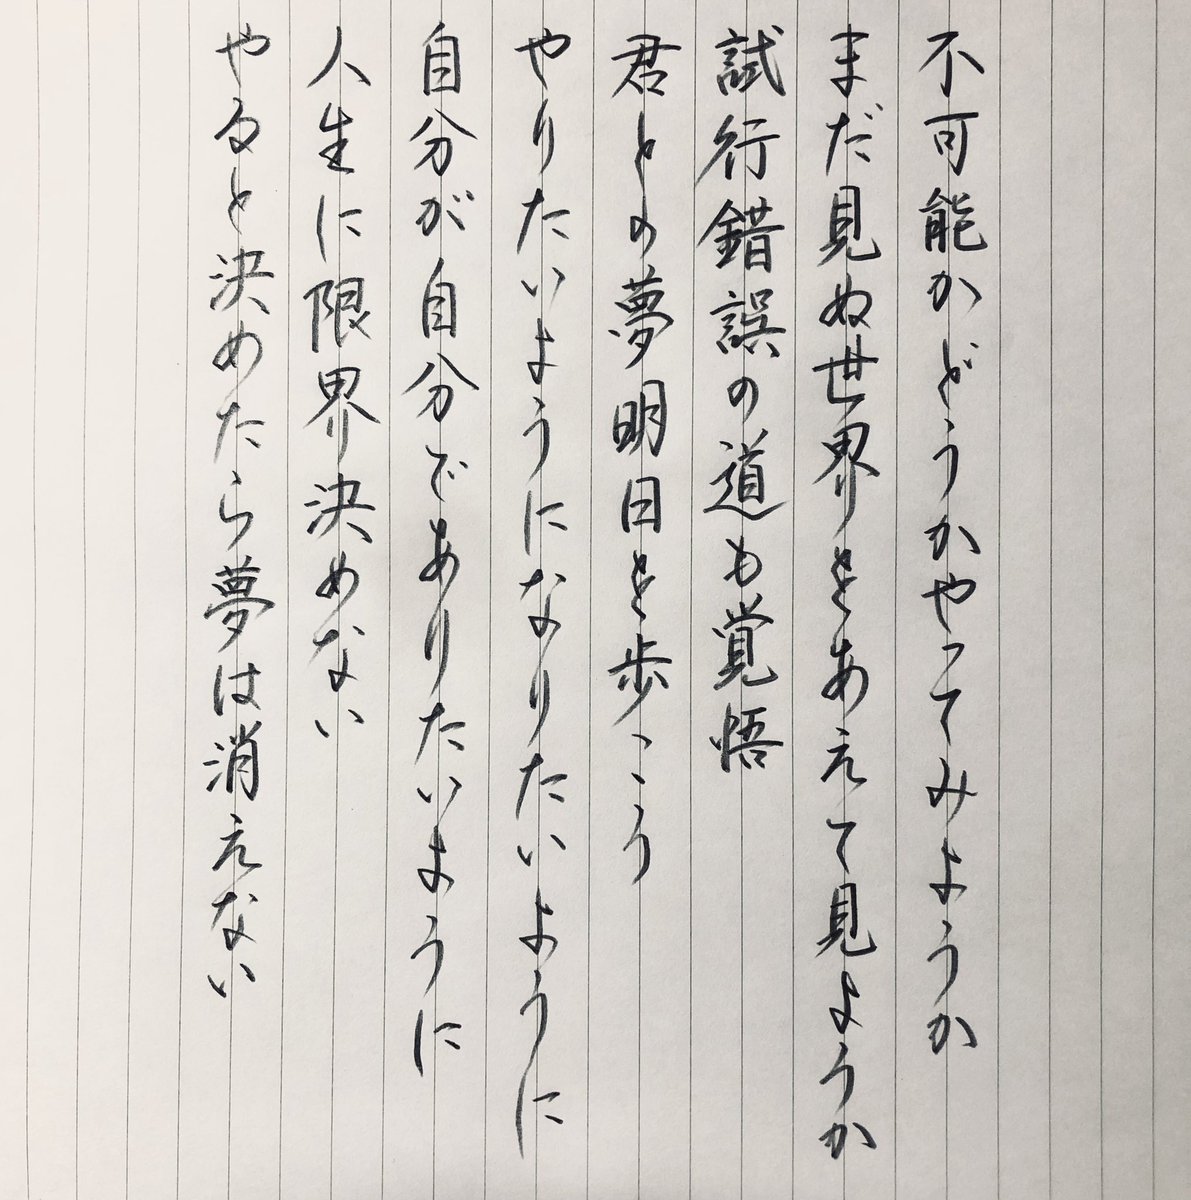 不可能かどうかやってみようか
まだ見ぬ世界をあえて見ようか
試行錯誤の道も覚悟
君との夢明日を歩こう
やりたいようになりたいように
自分が自分でありたいように
人生に限界決めない
やると決めたら夢は消えない